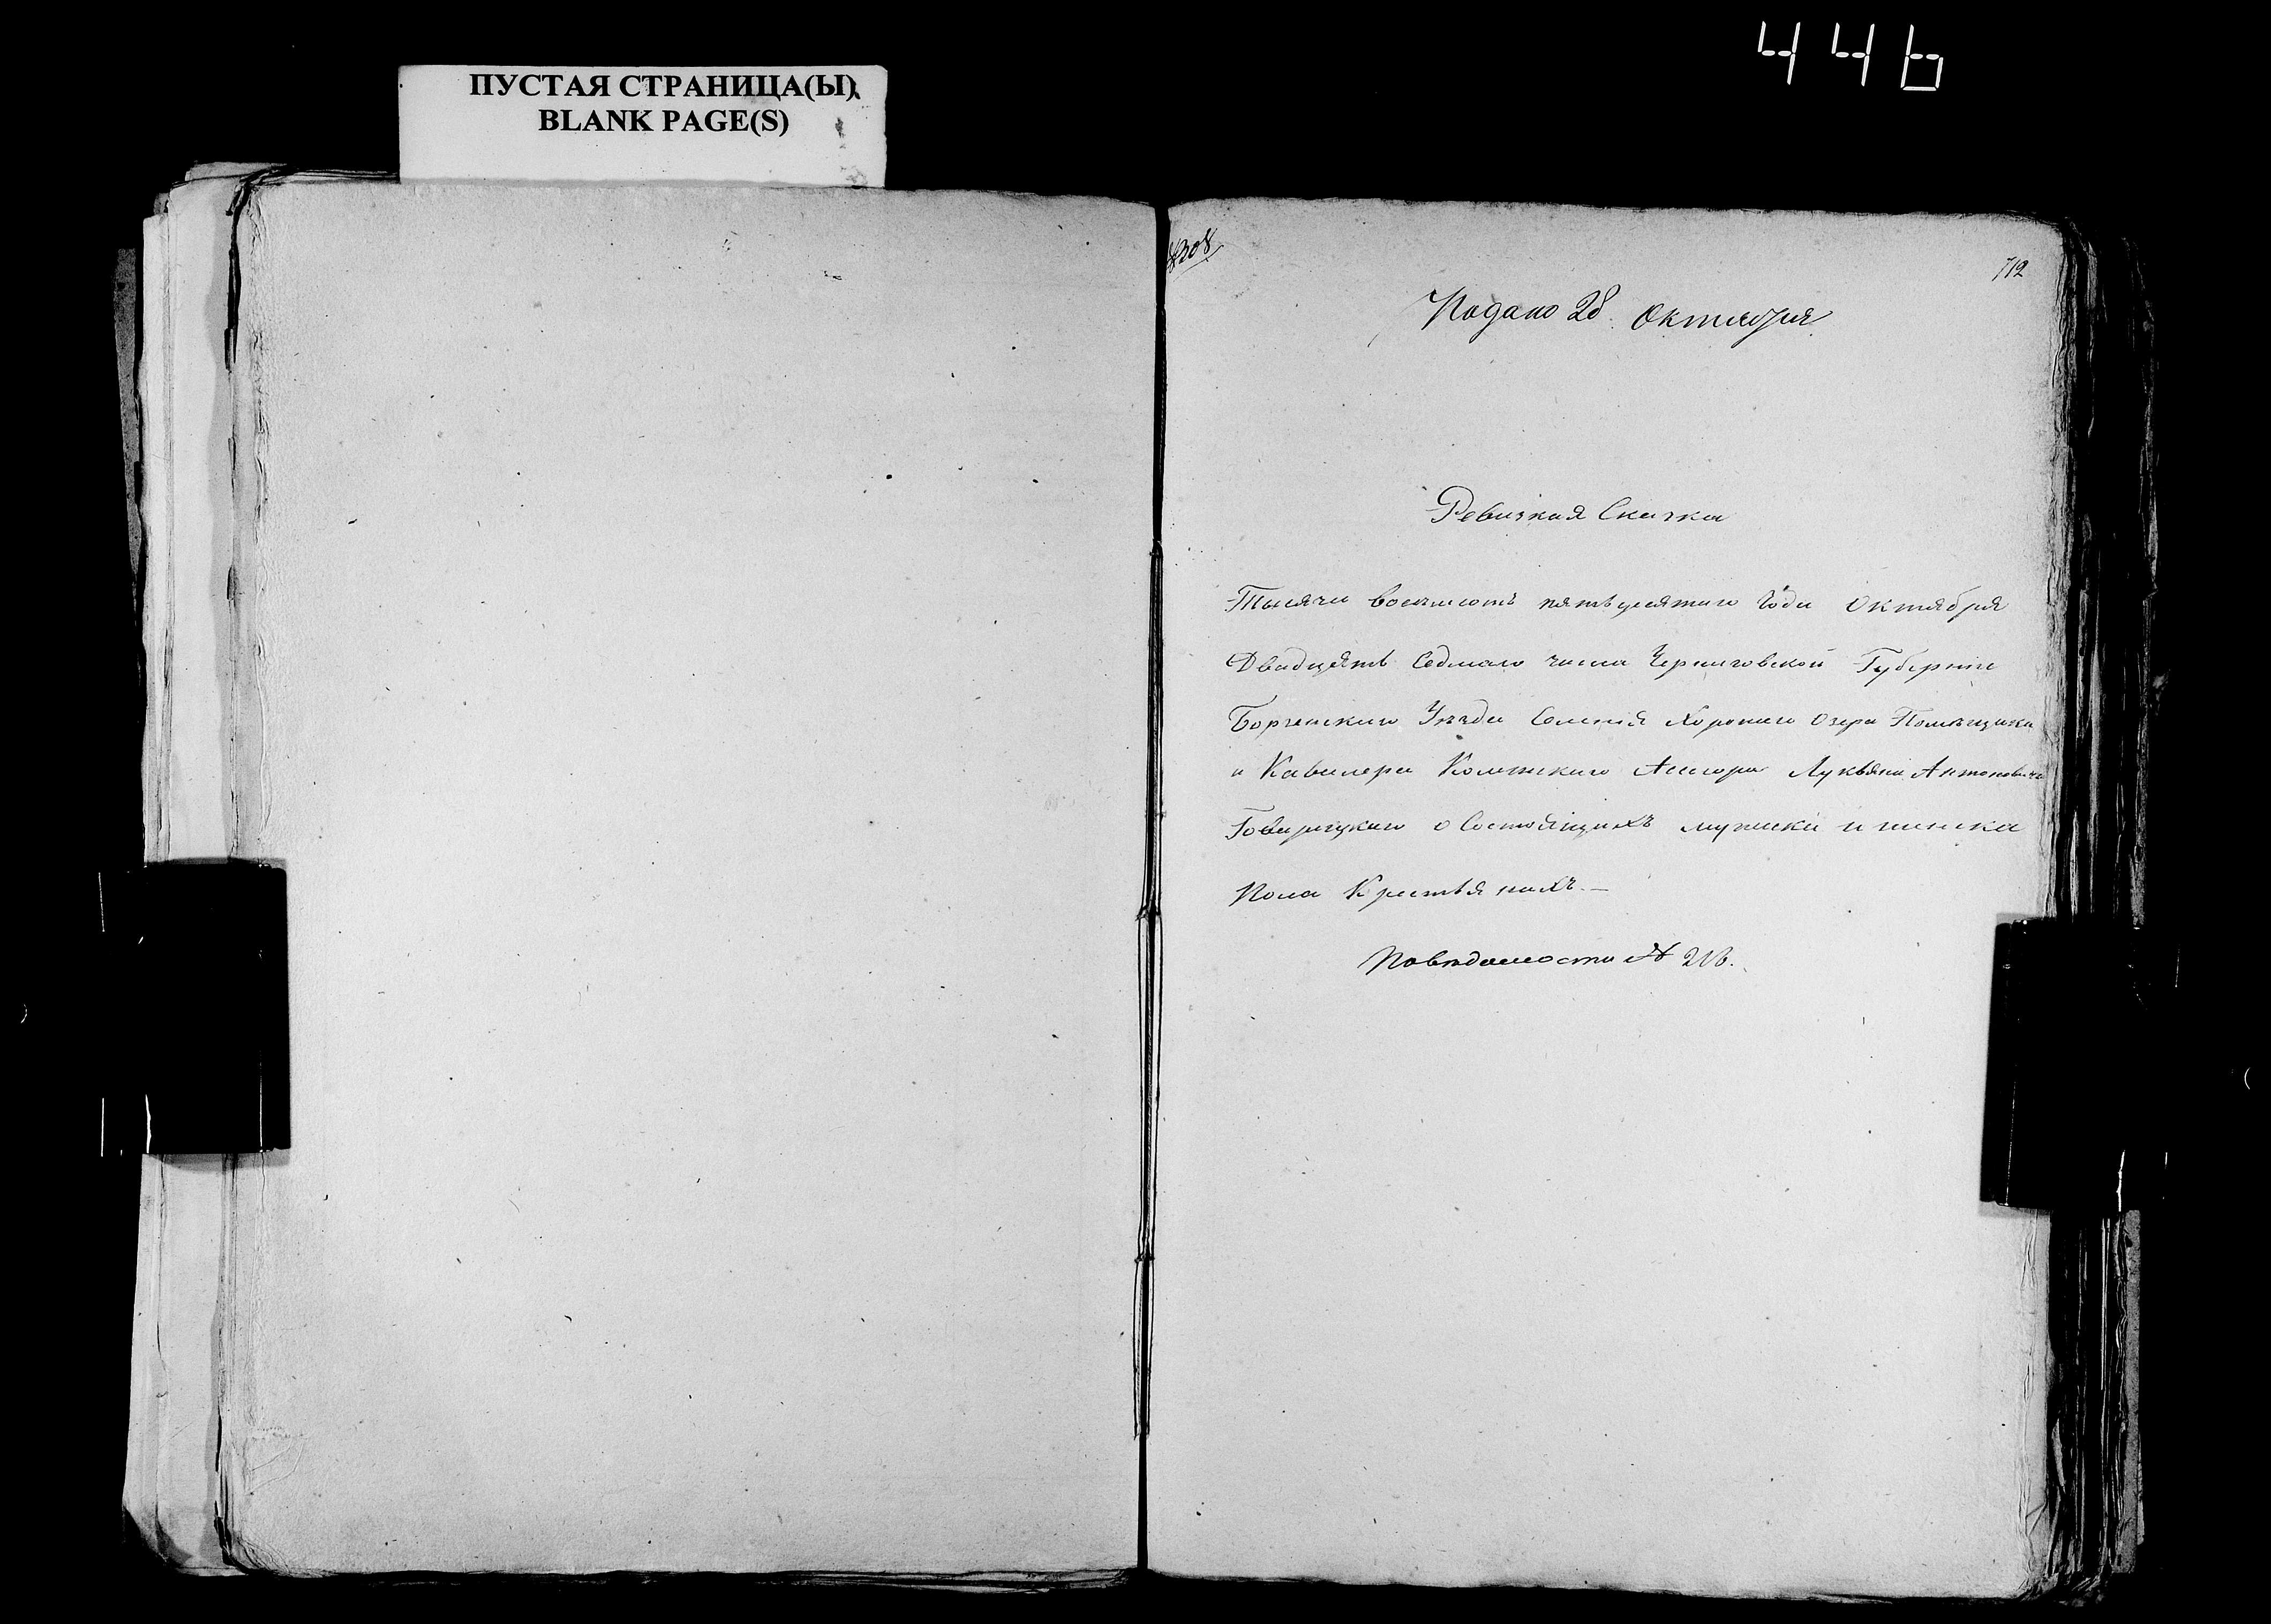 446
ПУСТАЯ СТРАНИЦА(Ы)
BLANK PAGE(S)
712
Подано 28 Октября
Ревизкая Сказка
Тысяча восемьсотъ пятьдесятаго Года Октября
Двадцать Седмаго числа Черниговской Губернии
Борзенскаго Уезда Селения Хорошаго Озера Помещика
и Кавалера Колежскаго Асесора Лукьяна Антоновича
о Состоящихъ мужеска и женска
Пола Крестьянахъ. —
По ведомости № 216.